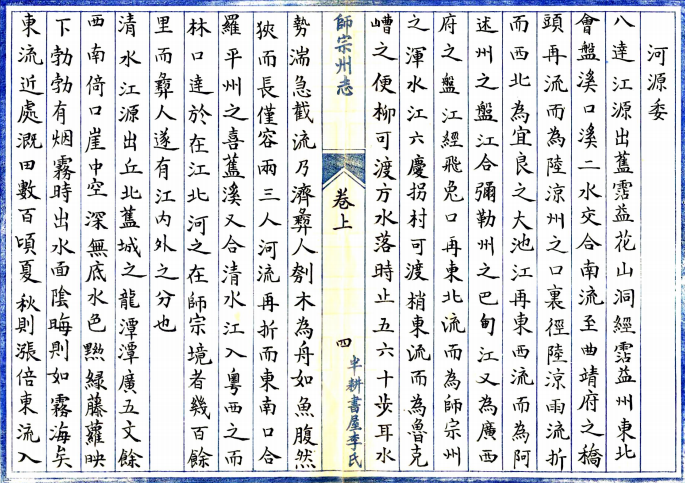 河源委
八達江源出舊霑益花山洞經霑益州東北
會盤溪口溪二水交合南流至曲靖府之橋
頭再流而為陸涼州之口裏徑陸涼雨流折
而西北為宜良之大池江再東西流而為阿
迷州之盤江合彌勒州之巴甸江又為廣西
府之盤江經飛兔口再東北流而為師宗州
之渾水江六慶拐村可渡梢東流而為魯克
嶆之便柳可渡方水落時止五六十步耳水
師宗州志
卷上
四
半耕書屋李氏
勢湍急截流乃濟彝人刳木為舟如魚腹然
狹而長僅容兩三人河流再折而東南口合
羅平州之喜舊溪又合清水江入粵西之而
林口達於在江北河之在師宗境者幾百餘
里而彝人遂有江內外之分也
清水江源出丘北舊城之龍潭潭廣五文餘
西南倚口崖中空深無底水色㸃綠藤蘿映
下勃勃有烟霧時出水面陰晦則如霧海矣
東流近處溉田數百頃夏秋則漲倍東流入